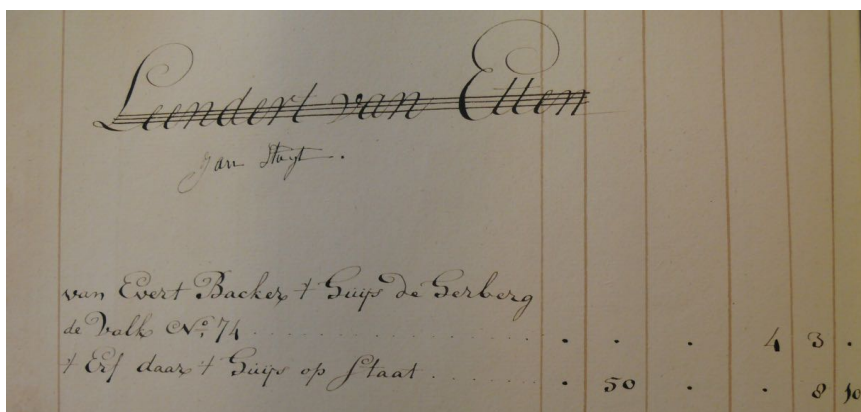 Leendert van Etten
Jan Stuyt.
van Evert Backer 't Huijs de Herberg
de Valk No. 74 . . . 4 3 .
't Erf daar 't Huijs op Staat . 50 . . 8 10